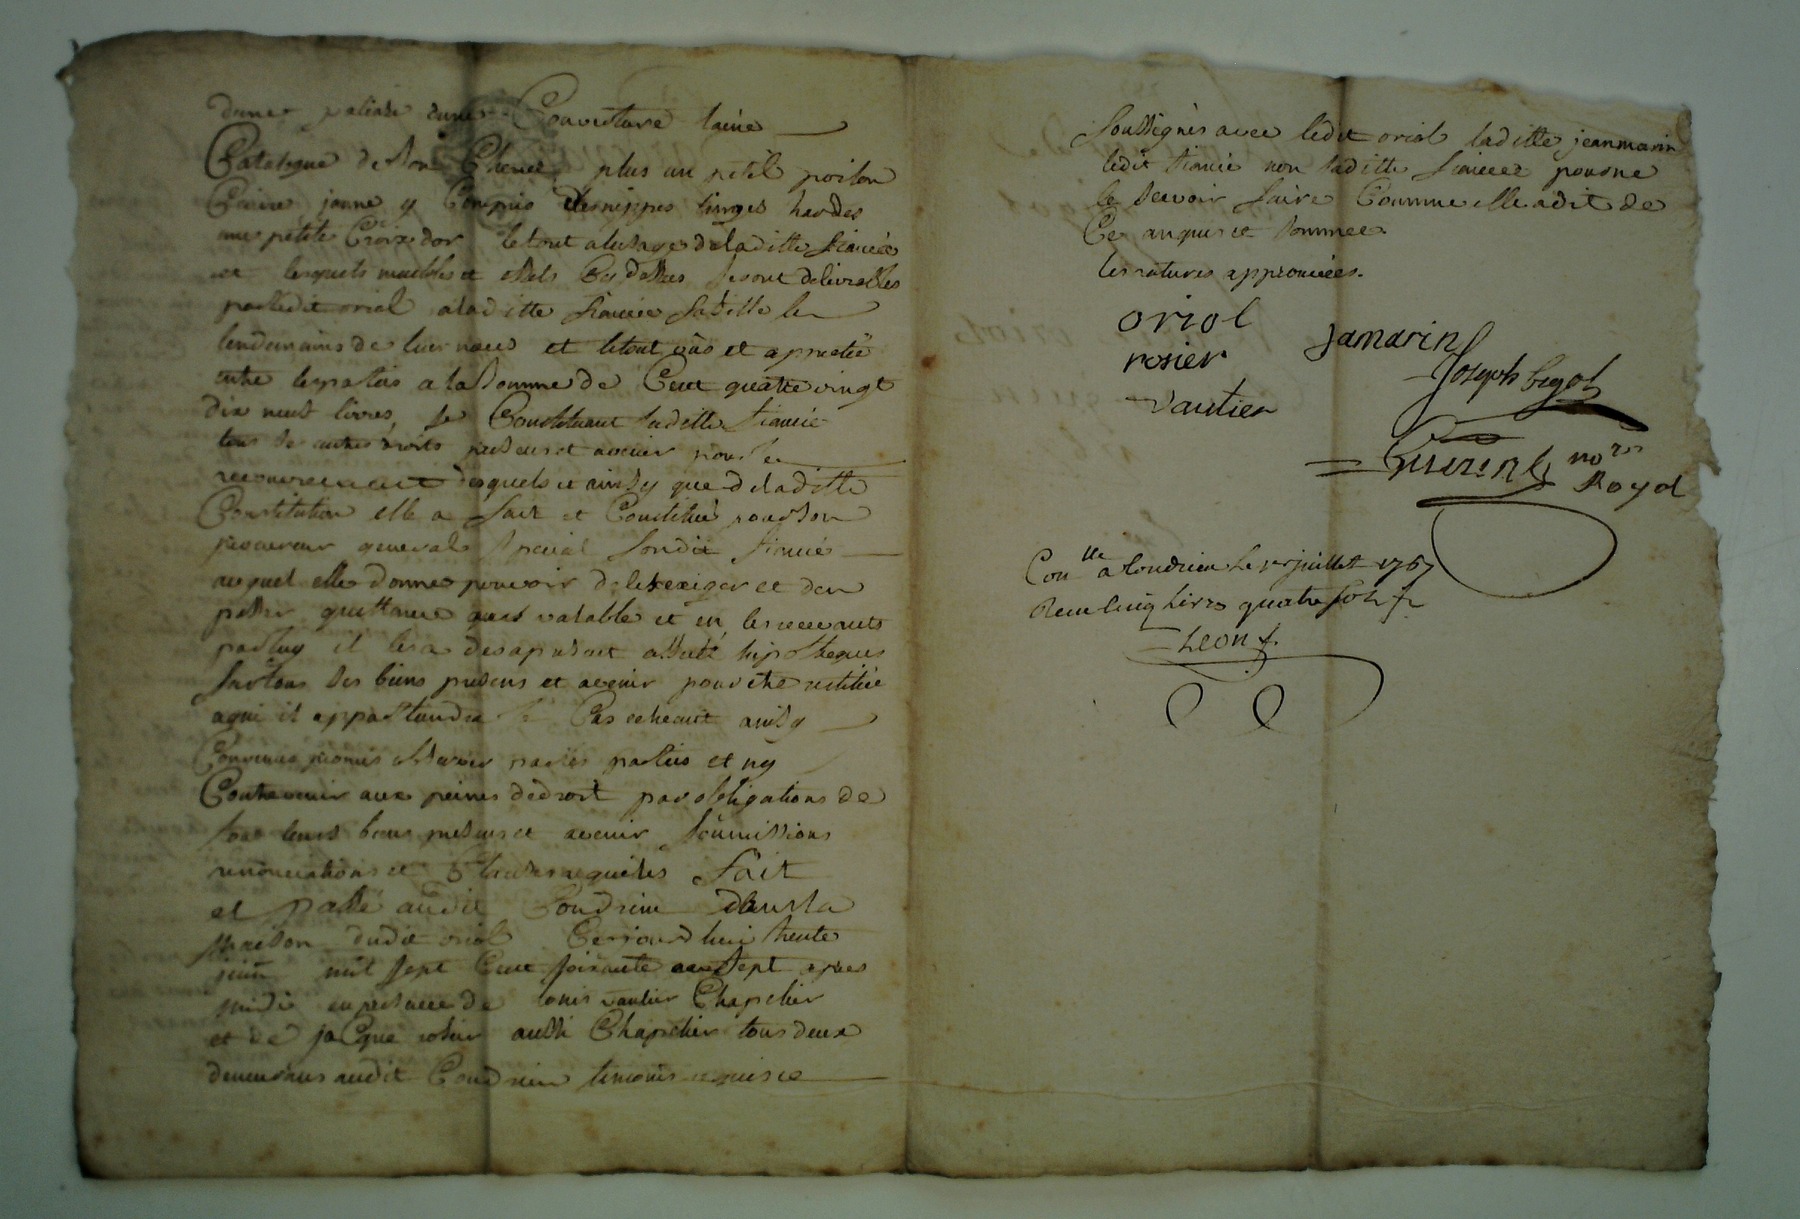 dune paliase dune Couverture laine
Catalogne de Bois Chene, plus un petit poilon
Cuivre jaune y Compris des nippes linges hardes
une petite Croix dor le tout a lusage de laditte fiancée
et lesquels meubles et effets Cy dessus seront delivrables
par ledit oriol a laditte fiancée sa fille le
lendemains de leur noces et le tout vûs et apretié
entre les parties a la Somme de Cent quatre vingt
dix neuf livres, se Constituant laditte fiancée
tous ses autres droits presens et avenir pour le
recouvrement desquels et ainsy que de laditte
Constitution elle a fait et Constitué pour son
procureur general Special sondit fiancé
auquel elle donne pouvoir de les exiger et den
passer quittance quest valable et en les recevants
par luy il les a des apresent assuré hipotheques
sur tous ses biens presens et avenir pour être restitué
a qui il appartiendra le Cas echeant ainsy
Convenus promis observer par les parties et ny
Contrevenir aux peines de droit par obligations de
tous leurs biens presens et avenir soumissions
renonciations et Clauses requises fait
et passé audit Condrieu dans la
maison dudit oriol Cejourdhui trente
juin mil sept Cent soixante sept apres
midi en presence de Louis vautier Chapelier
et de jacque rosier aussi Chapelier tous deux
demeurans audit Condrieu temoins requis et
soussignés avec ledit oriol laditte jeanmarin
ledit fiancé non laditte fiancée pour ne
le scavoir faire Comme elle a dit de
Ce enquis et sommée
les ratures approuvées.
oriol
Jamarin
rosier
Joseph bigot
vautier
Guerin nore
Royal
Conlle a Condrieu le 1er juillet 1767
Recu Cinq livres quatre sols
Leon